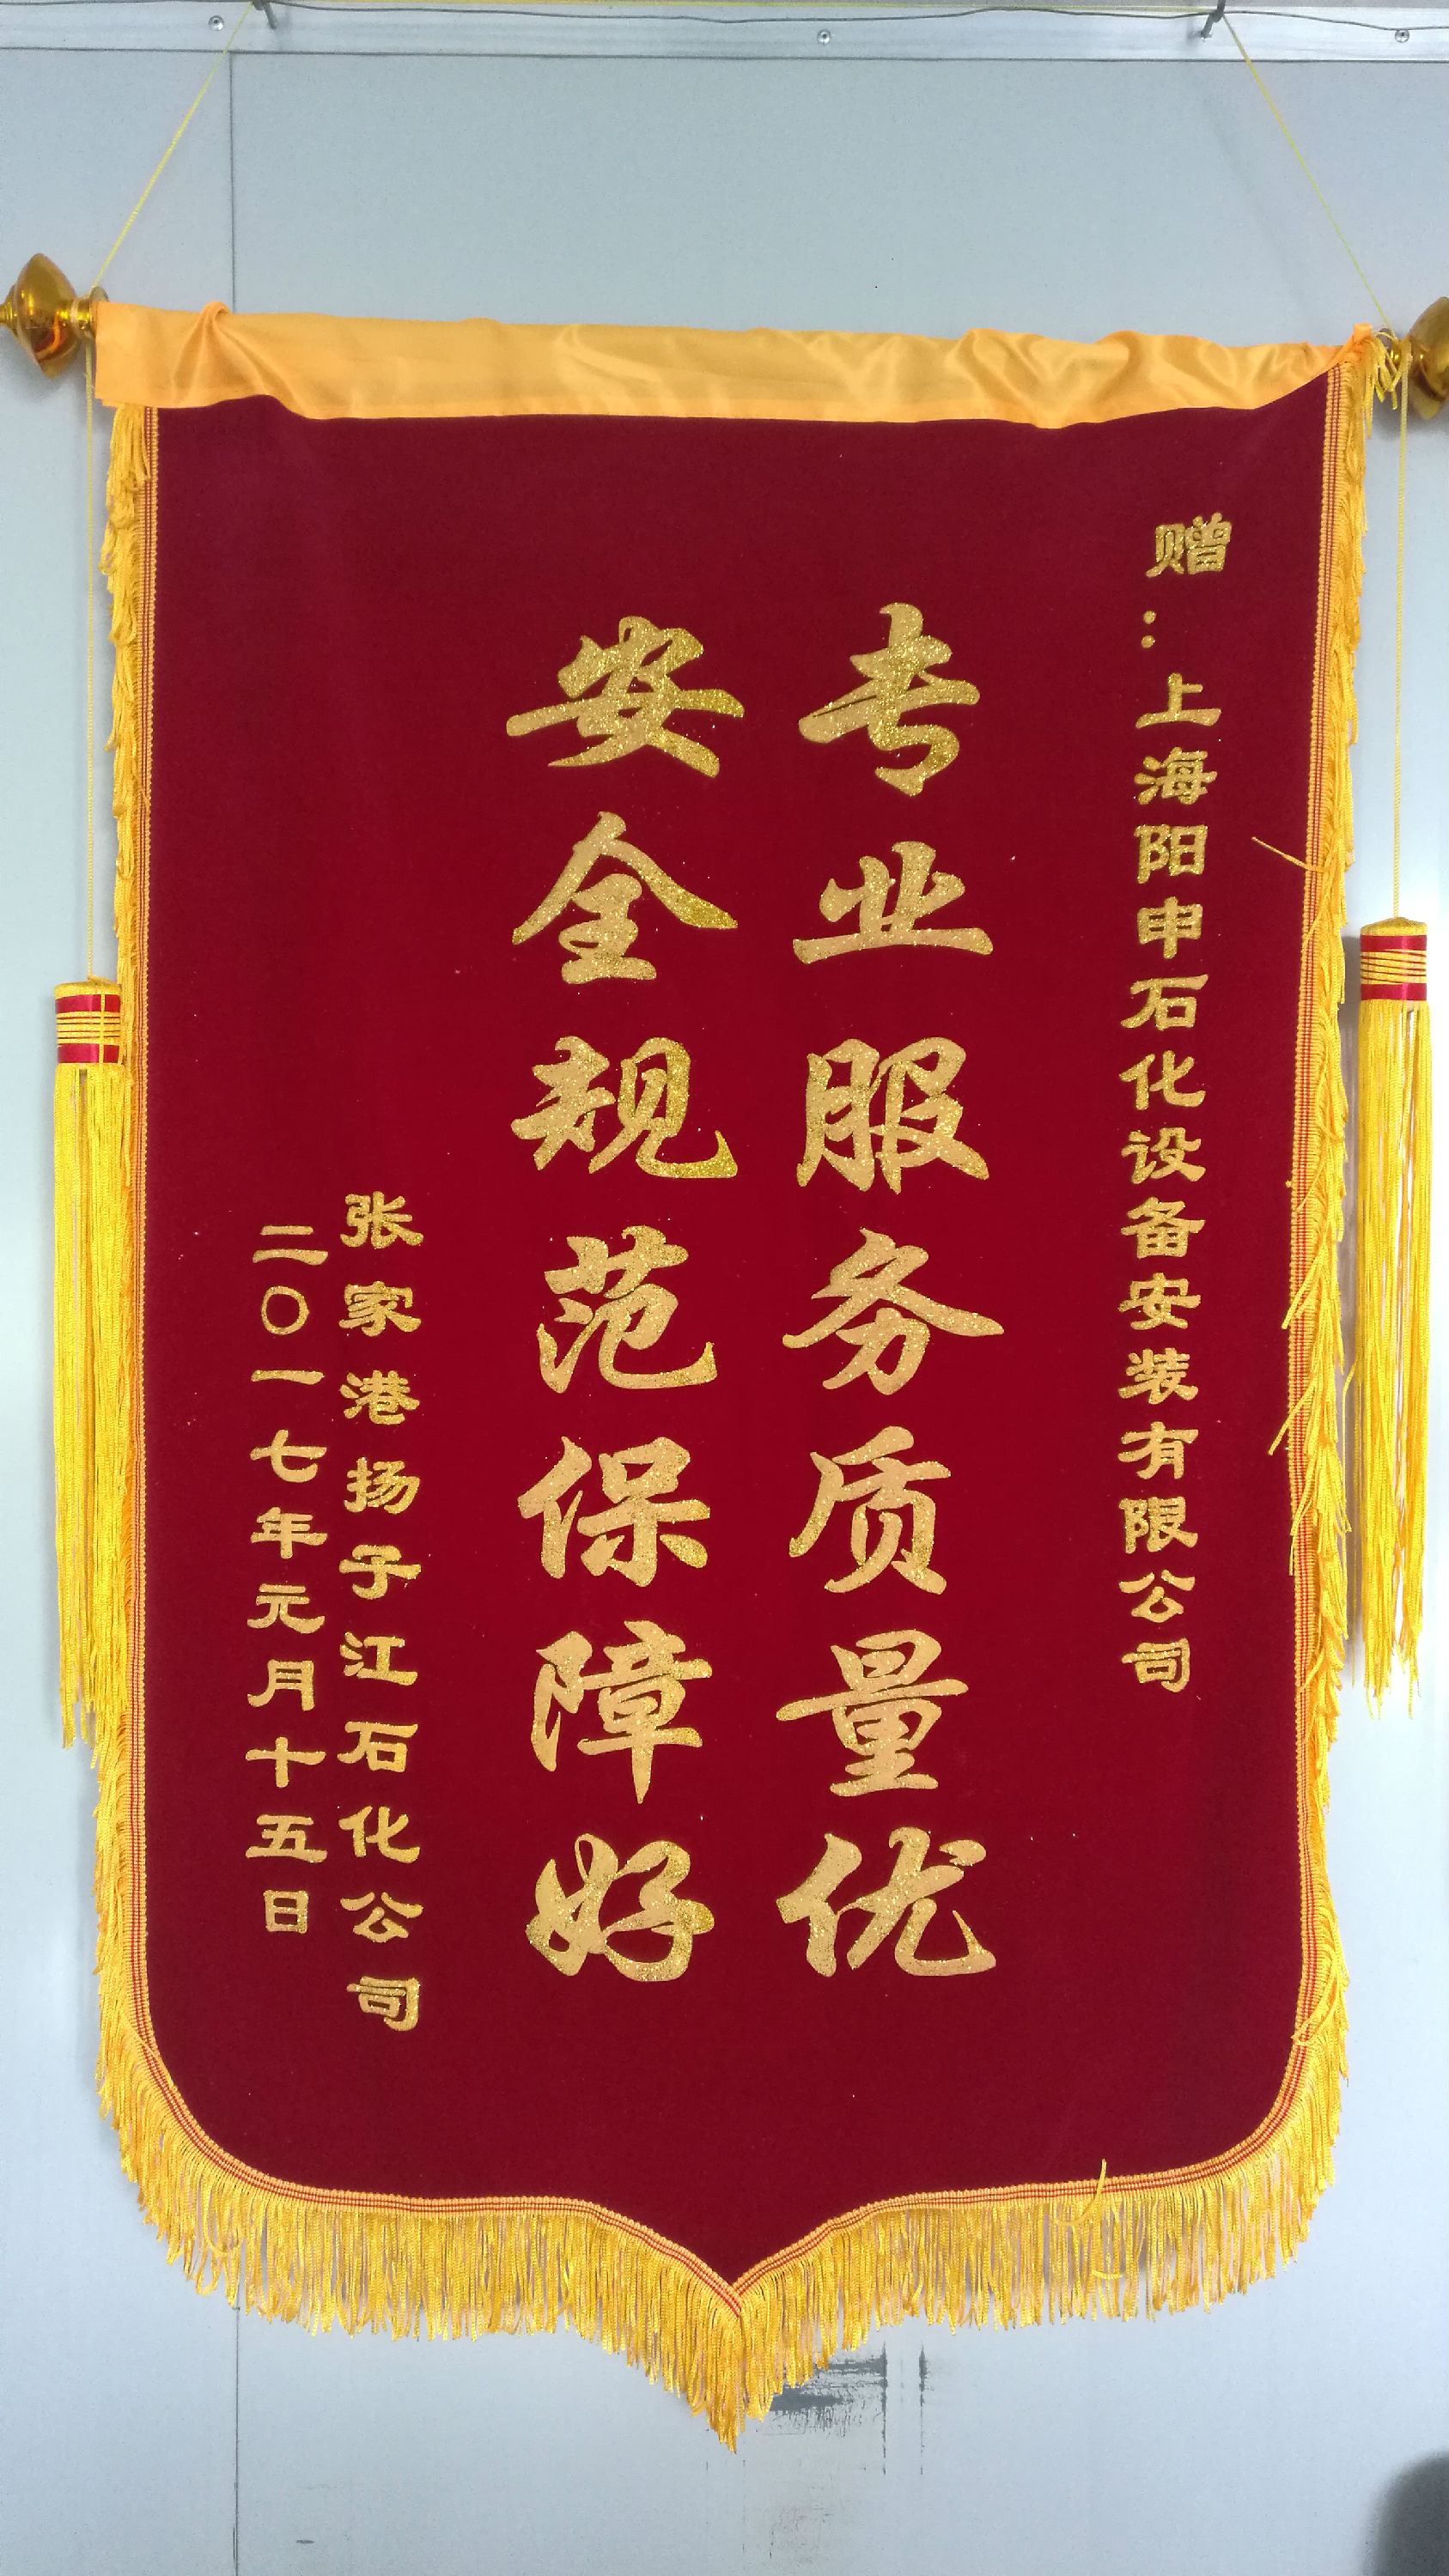 赠：上海阳申石化设备安装有限公司
专业服务质量优
安全规范保障好
张家港扬子江石化公司
二〇一七年元月十五日